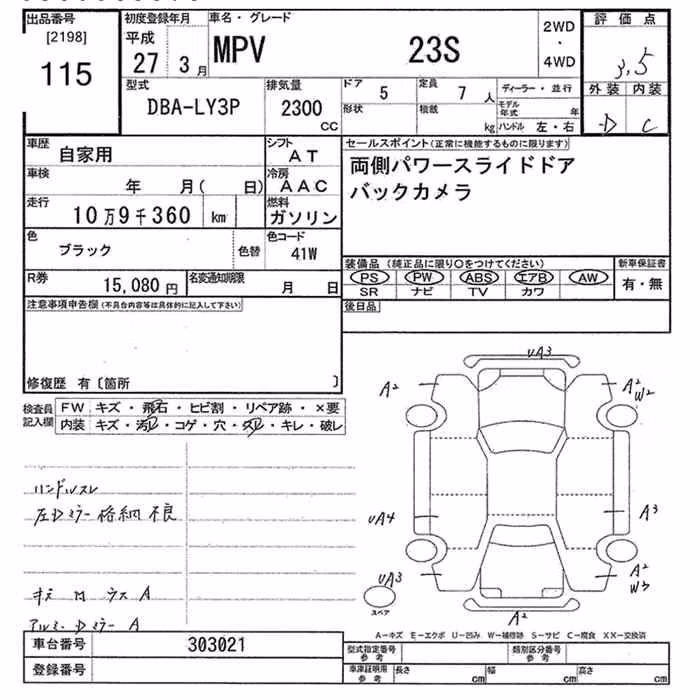 出品番号
[2198]
115
初度登録年月
平成
27 3月
車名・グレード
MPV 23S
2WD
・
4WD
評価点
3.5
外装 内装
D C
型式
DBA-LY3P
排気量
2300
CC
ドア 5
定員 7 人
形状
積載 kg
ディーラー・並行
モデル年式 年
ハンドル 左・右
車歴 自家用
シフト AT
車検 年 月( 日)
冷房 AAC
走行 10万9千360 km
燃料 ガソリン
色 ブラック 色替
色コード 41W
R券 15,080円
名変通知期限 月 日
セールスポイント(正常に機能するものに限ります)
両側パワースライドドア
バックカメラ
装備品(純正品に限り○をつけてください)
PS PW ABS エアB AW
SR ナビ TV カワ
新車保証書
有・無
後日品
注意事項申告欄(不具合内容等は具体的に記入して下さい)
修復歴 有〔箇所 〕
検査員記入欄
FW キズ・飛石・ヒビ割・リペア跡・×要
内装 キズ・汚レ・コゲ・穴・スレ・キレ・破レ
ハンドルスレ
左Dミラー格納不良
A
アルミ・Dミラー A
UA3
A2
A2
W2
UA4
A3
UA3
スペア
A2
W3
A2
A-キズ E-エクボ U-凹み W-補修跡 S-サビ C-腐食 XX-交換済
車台番号 303021
登録番号
型式指定番号 参考
類別区分番号 参考
車庫証明用 参考
長さ cm
幅 cm
高さ cm